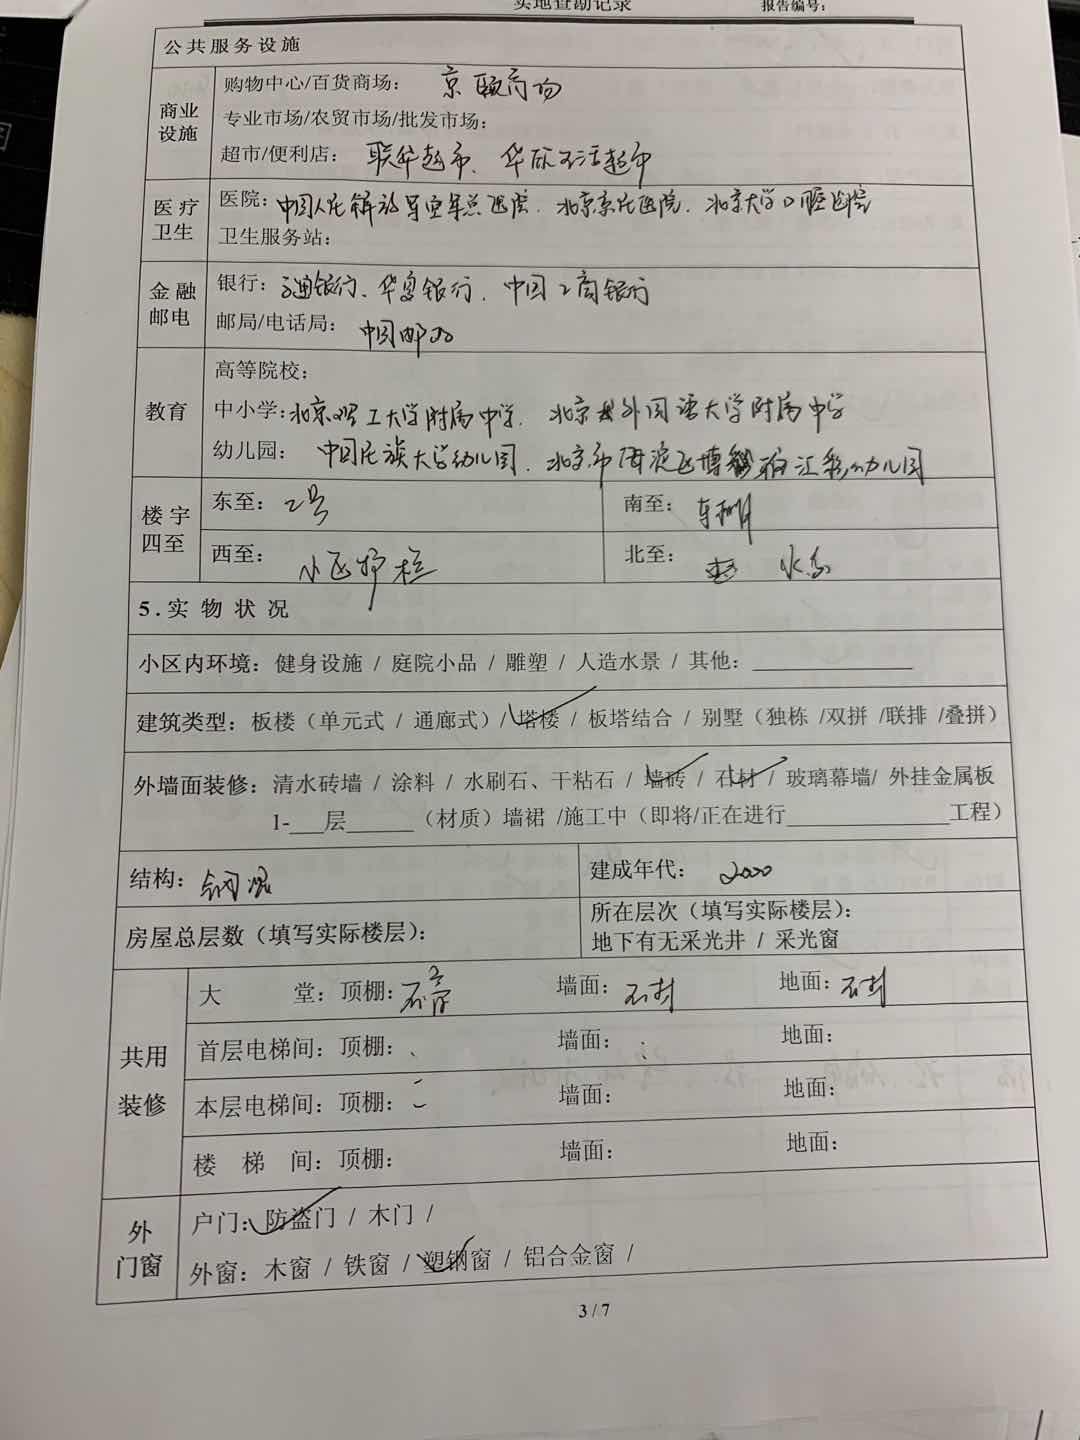 实地查勘记录 报告编号：
公共服务设施
商业设施
购物中心/百货商场： 京颐商场
专业市场/农贸市场/批发市场：
超市/便利店： 联华超市、华欣生活超市
医疗卫生
医院：中国人民解放军空军总医院、北京京民医院、北京大学口腔医院
卫生服务站：
金融邮电
银行：交通银行、华夏银行、中国工商银行
邮局/电话局： 中国邮政
教育
高等院校：
中小学：北京理工大学附属中学、北京外国语大学附属中学
幼儿园： 中国民族大学幼儿园、北京市海淀区博 汇彩幼儿园
楼宇四至
东至： 2号 南至： 车棚
西至： 小区护栏 北至：
5.实物状况
小区内环境：健身设施 / 庭院小品 / 雕塑 / 人造水景 / 其他：
建筑类型：板楼（单元式 / 通廊式）/ 塔楼 / 板塔结合 / 别墅（独栋 /双拼 /联排 /叠拼）
外墙面装修：清水砖墙 / 涂料 / 水刷石、干粘石 / 墙砖 / 石材 / 玻璃幕墙/ 外挂金属板
1-___层______（材质）墙裙 /施工中（即将/正在进行_______________工程）
结构： 钢混 建成年代： 2000
房屋总层数（填写实际楼层）： 所在层次（填写实际楼层）：
地下有无采光井 / 采光窗
共用装修
大 堂：顶棚：石膏 墙面：石材 地面：石材
首层电梯间：顶棚： 墙面： 地面：
本层电梯间：顶棚： 墙面： 地面：
楼 梯 间：顶棚： 墙面： 地面：
外门窗
户门：防盗门 / 木门 /
外窗：木窗 / 铁窗 / 塑钢窗 / 铝合金窗 /
3 / 7